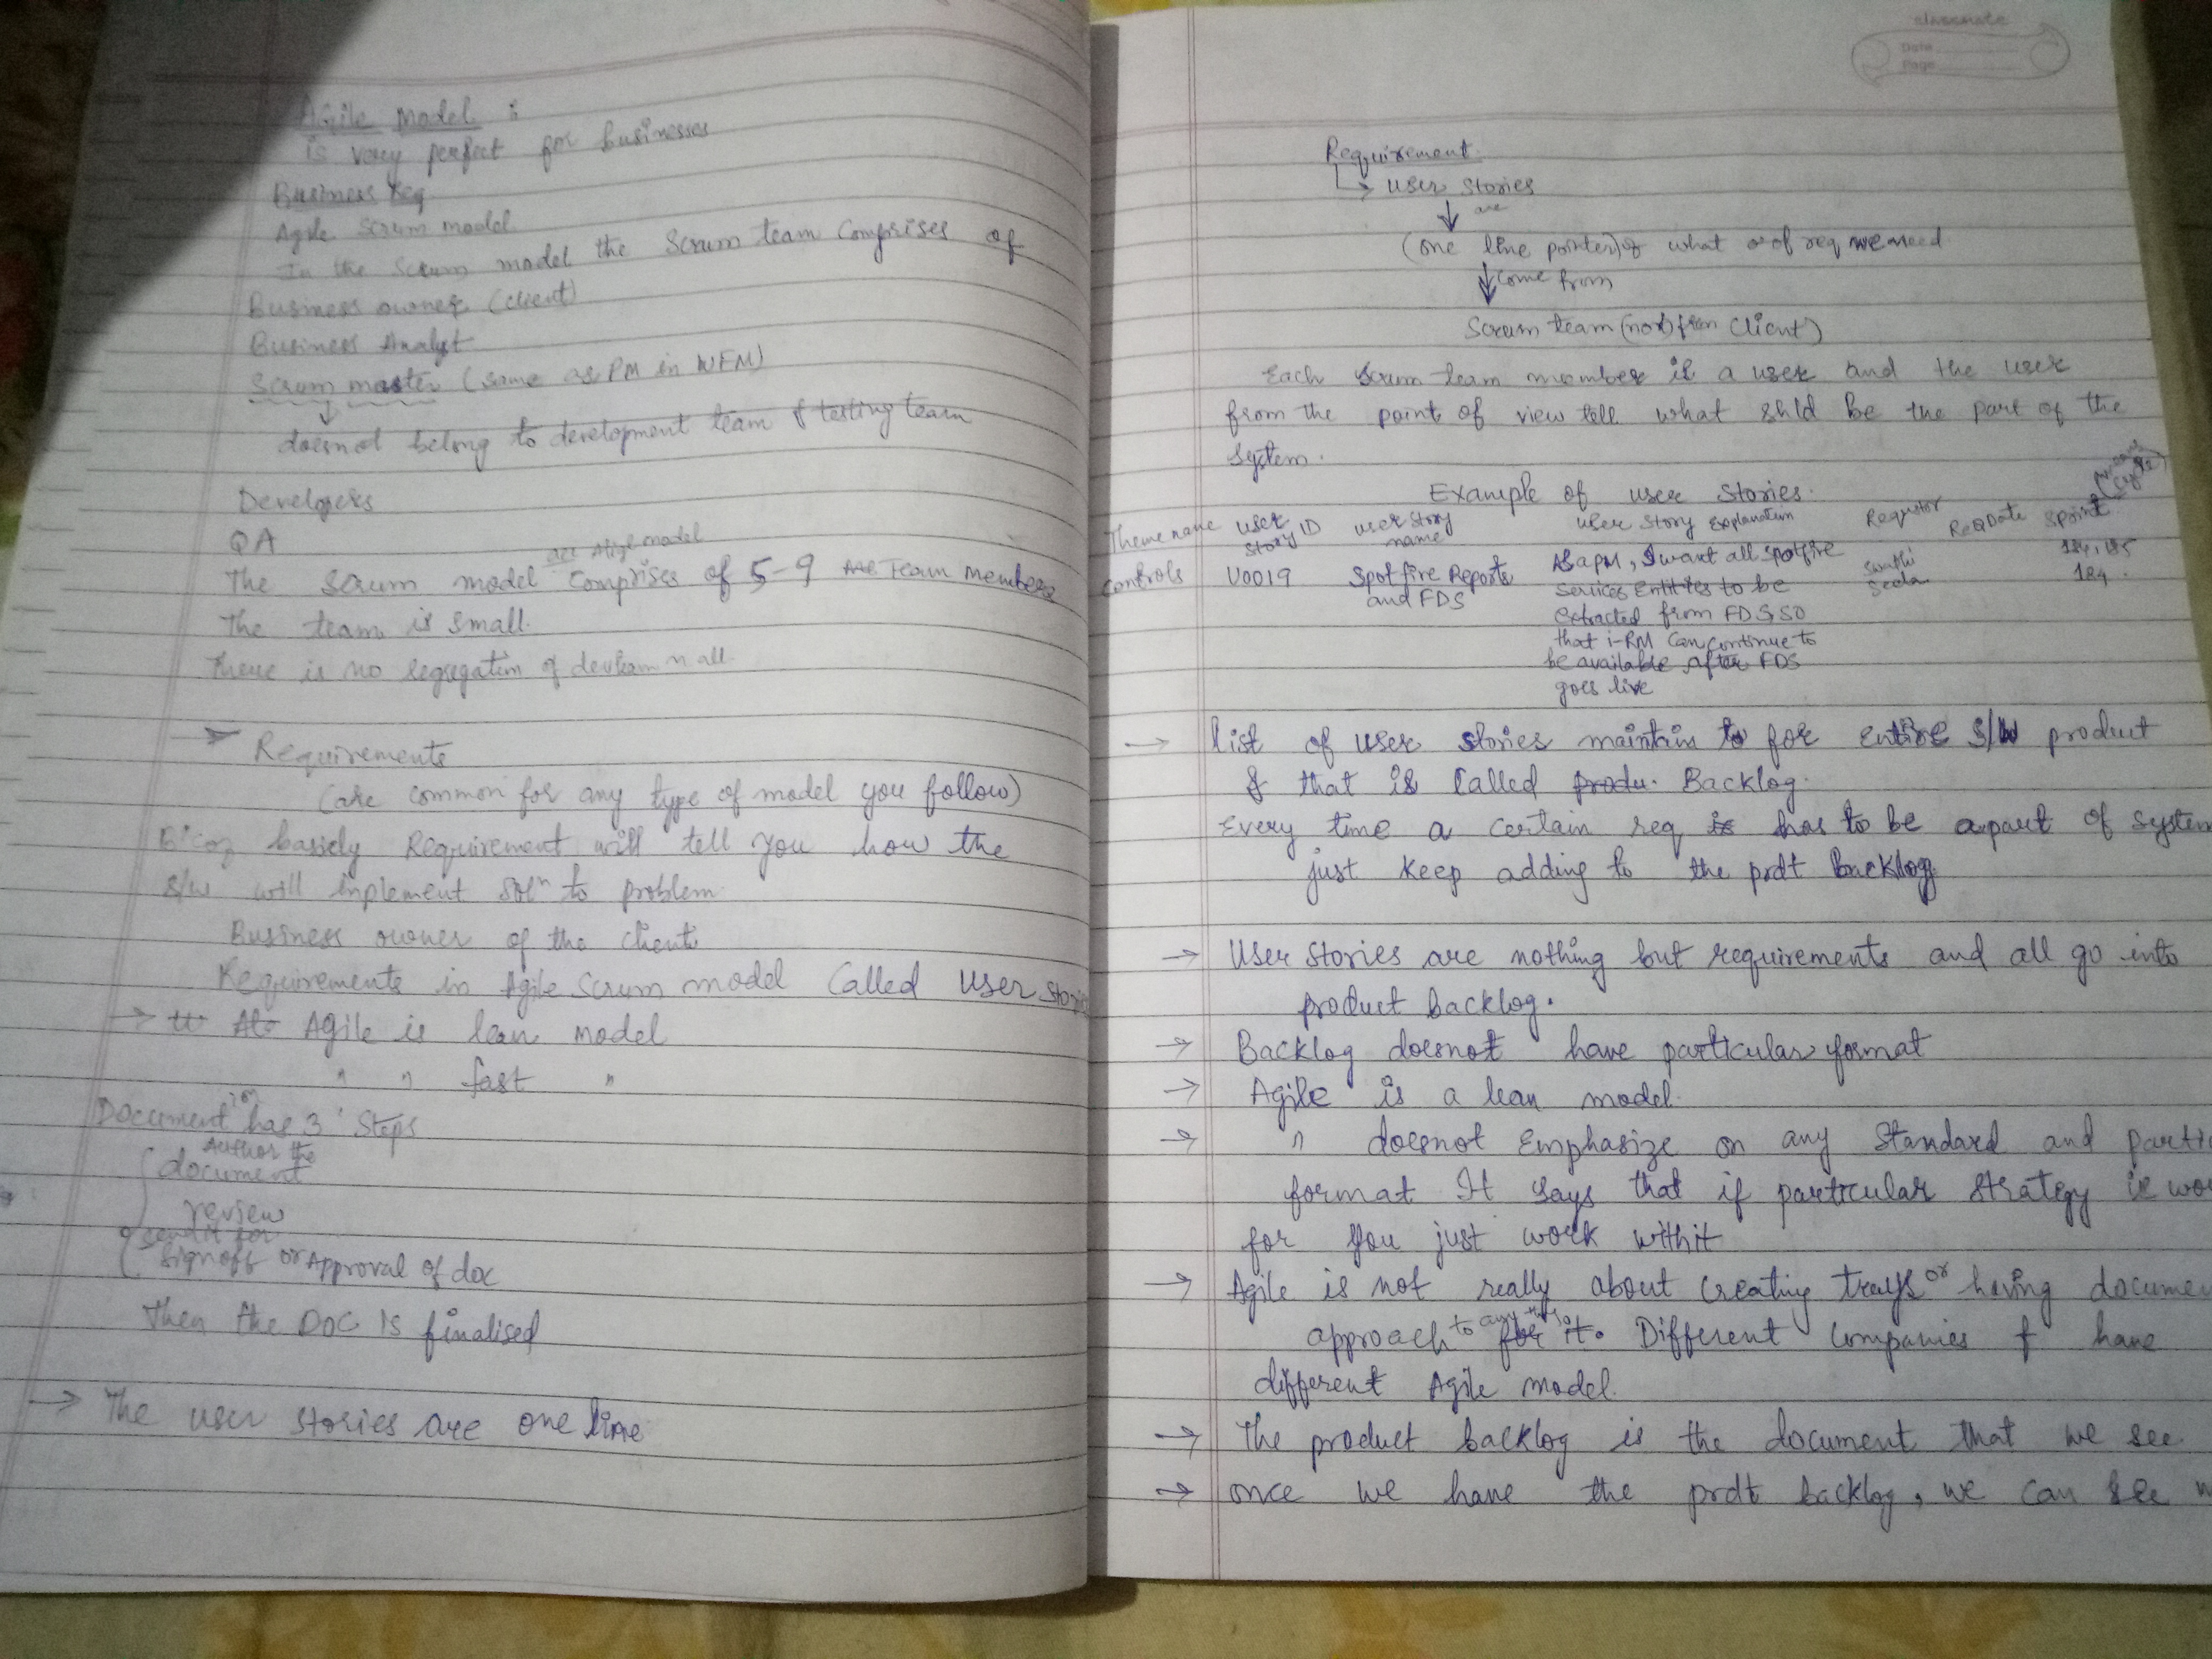 Agile Model :
is very perfect for businesses
Business Req
Agile Scrum model
In the Scrum model the Scrum team comprises of
Business owner (client)
Business Analyst
Scrum master (same as PM in WFM)
doesnot belong to development team & testing team
Developers
QA
acc Agile model
The Scrum model comprises of 5-9 Team Members
The team is small.
There is no segregation of
Requirements
(are common for any type of model you follow)
B'coz basicly Requirement will tell you how the
S/w will implement Solⁿ to problem
Business owner of the client
Requirements in Agile Scrum model called User Stories
→ Agile is lean model
" " fast "
Documention has 3 Steps
Author the
document
review
send it for
Signoff or Approval of doc
Then the DOC is finalised
→ The user stories are one line
classmate
Date
Page
Requirement
→ user stories
↓ are
(one line pointer) of what of req we need
↓ come from
Scrum team (not from client)
Each Scrum team member is a user and the user
from the point of view tell what shld be the part of the
System.
Example of user Stories.
Theme name User Story ID user story name user story Explanation Requstor ReqDate Spoint
Controls U0019 Spotfire Reports and FDS As a PM, I want all spotfire
services Entitites to be
extracted from FDS, so
that i-RM can continue to
be available after FDS
goes live
Swathi
124, 125
124.
→ list of user stories maintain to for entire S/W product
& that is called produ. Backlog.
Every time a certain req is has to be a part of system
just keep adding to the prdt Backlog
→ User Stories are nothing but requirements and all go into
product backlog.
→ Backlog doesnot have particular format
→ Agile is a lean model.
→ " doesnot Emphasize on any Standard and partic
format It says that if particular strategy is wor
for you just work with it
→ Agile is not really about creating trays or having documen
approach to any for it. Different companies have
different Agile model.
→ The product backlog is the document that we see.
→ once we have the prdt backlog, we can see w